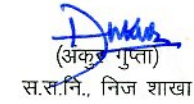 (अंकुर गुप्ता)
स.स.नि., निज शाखा